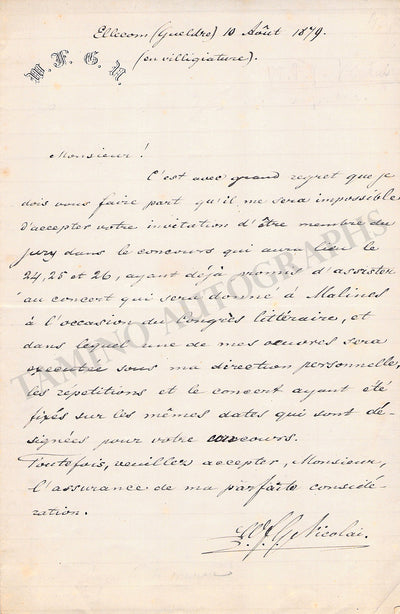 Ellecom (Gueldre) 10 Août 1879.
W. F. G. N.
(en villégiature).
Monsieur!
C'est avec grand regret que je
dois vous faire part qu'il me sera impossible
d'accepter votre invitation d'être membre du
jury dans le concours qui aura lieu le
24, 25 et 26, ayant déjà promis d'assister
au concert qui sera donné à Malines
à l'occasion du Congrès littéraire, et
dans lequel une de mes œuvres sera
executée sous ma direction personnelle,
les répétitions et le concert ayant été
fixés sur les mêmes dates qui sont dé-
signées pour votre concours.
Toutefois, veuillez accepter, Monsieur,
l'assurance de ma parfaite considé-
ration.
W. F. G. Nicolai.
TAMINO AUTOGRAPHS